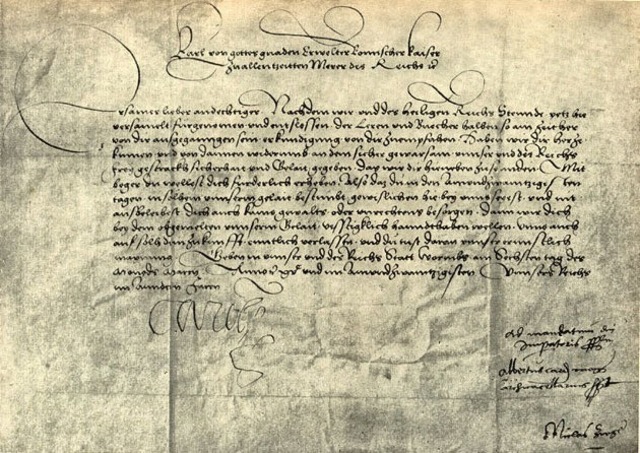 Karl von gottes gnaden Erwelter Romischer kaiser
zu allen tzeitten Merer des Reichs
Ersamer lieber andechtiger Nachdem wir und des heiligen Reichs Stennde yetz hie
versamelt furgenomen und entslossen der Leren und Buecher halben so
von dir ausgegangen sein erkundigung von dir zu empfahen Haben wir dir herzu
kumen und von dannen widerumb an dein sicher gewarsam unser und des Reichs
frey gestracks sicherhait und Gelait gegeben daz wir dir hieneben zusenden Mit
beger du wellest dich furderlich erheben Also daz du in den ainundzwaintzigisten
tagen in solhem unserm gelait bestimbt gewislichen hie bey uns seiest und nit
aussbleibest dich auch kains gewalts oder unrechtens besorgen dann wir dich
bey dem obgemelten unserm Gelait vestigklich hanndthaben wellen Unns auch
auf solh dein zukunfft enntlich verlassen und du tust daran unser ernnstlich
maynung Geben in unser und des Reichs Statt Wormbs am Sechsten tag des
Monads Marcy Anno und im Ainundzwaintzigisten Unsers Reichs
im Anndern Jaren
Carolus
Ad mandatum
Imperatoris
Albertus card
archicancellarius
Niclas